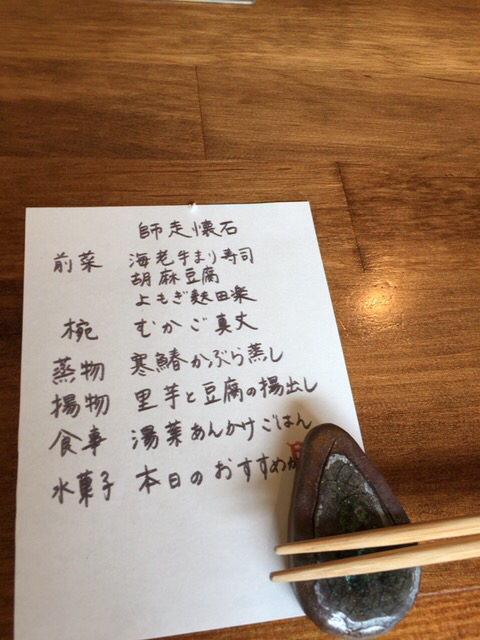 師走懐石
前菜 海老手まり寿司
胡麻豆腐
よもぎ麩田楽
椀 むかご真丈
蒸物 寒鰆かぶら蒸し
揚物 里芋と豆腐の揚出し
食事 湯葉あんかけごはん
水菓子 本日のおすすめ